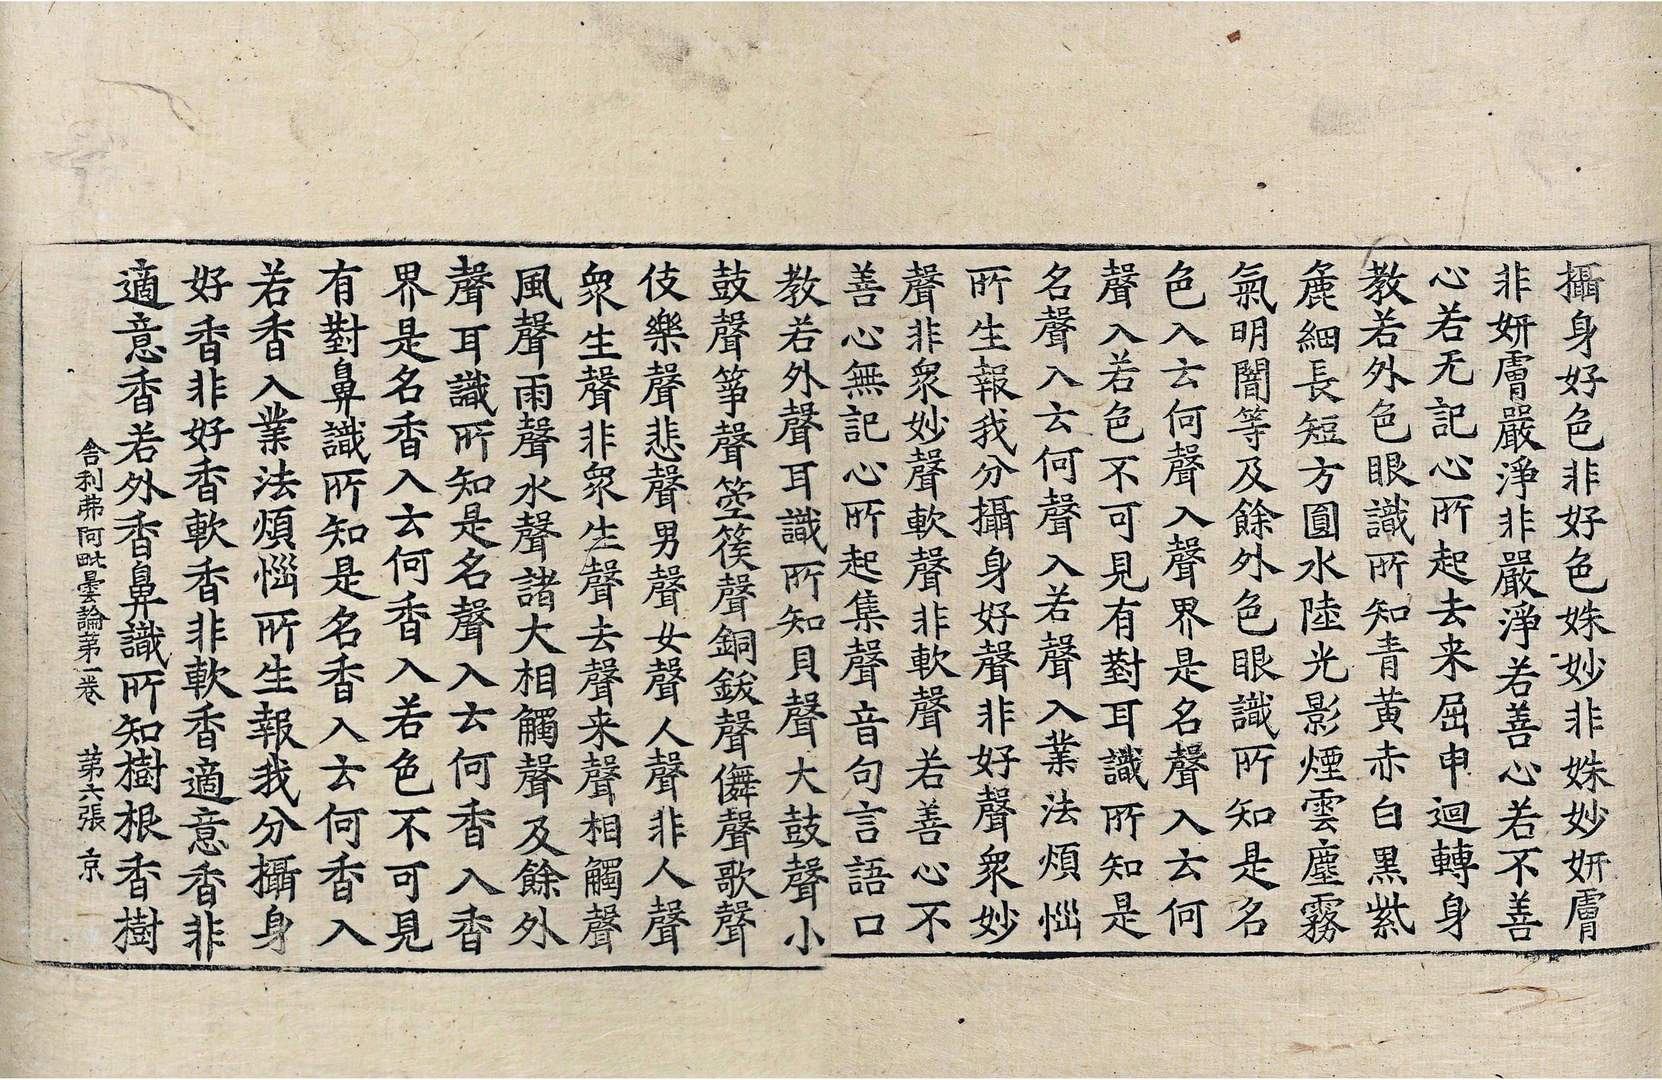 攝身好色非好色姝妙非姝妙妍膚
非妍膚嚴淨非嚴淨若善心若不善
心若无記心所起去来屈申迴轉身
教若外色眼識所知青黄赤白黒紫
麁細長短方圓水陸光影煙雲塵霧
氣明闇等及餘外色眼識所知是名
色入云何聲入聲界是名聲入云何
聲入若色不可見有對耳識所知是
名聲入云何聲入若聲入業法煩惱
所生報我分攝身好聲非好聲衆妙
聲非衆妙聲軟聲非軟聲若善心不
善心無記心所起集聲音句言語口
教若外聲耳識所知貝聲大鼓聲小
鼓聲筝聲箜篌聲銅鈸聲儛聲歌聲
伎樂聲悲聲男聲女聲人聲非人聲
衆生聲非衆生聲去聲来聲相觸聲
風聲雨聲水聲諸大相觸聲及餘外
聲耳識所知是名聲入云何香入香
界是名香入云何香入若色不可見
有對鼻識所知是名香入云何香入
若香入業法煩惱所生報我分攝身
好香非好香軟香非軟香適意香非
適意香若外香鼻識所知樹根香樹
舎利弗阿毗曇論第一卷 第六張 京